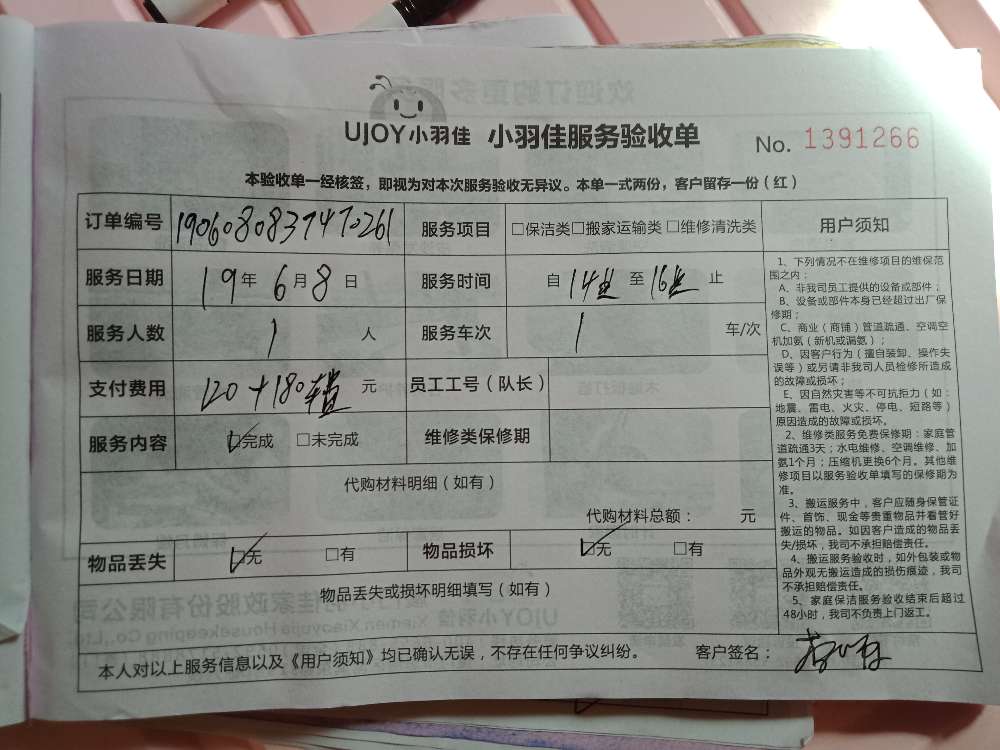 UJOY小羽佳 小羽佳服务验收单 No. 1391266
本验收单一经核签，即视为对本次服务验收无异议。本单一式两份，客户留存一份（红）
订单编号 190608083747 0261 服务项目 □保洁类□搬家运输类 □维修清洗类
服务日期 19年 6月8日 服务时间 自 14 至 16 止
服务人数 1 人 服务车次 1 车/次
支付费用 120+180 元 员工工号（队长）
服务内容 ☑完成 □未完成 维修类保修期
代购材料明细（如有）
代购材料总额： 元
物品丢失 ☑无 □有 物品损坏 ☑无 □有
物品丢失或损坏明细填写（如有）
本人对以上服务信息以及《用户须知》均已确认无误，不存在任何争议纠纷。 客户签名：
用户须知
1、下列情况不在维修项目的维保范
围之内：
A、非我司员工提供的设备或部件；
B、设备或部件本身已经超过出厂保
修期；
C、商业（商铺）管道疏通、空调空
机加氨（新机或漏氨）；
D、因客户行为（擅自装卸、操作失
误等）或另请非我司人员检修所造成
的故障或损坏；
E、因自然灾害等不可抗拒力（如：
地震、雷电、火灾、停电、短路等）
原因造成的故障或损坏。
2、维修类服务免费保修期：家庭管
道疏通3天；水电维修、空调维修、加
氨1个月；压缩机更换6个月。其他维
修项目以服务验收单填写的保修期为
准。
3、搬运服务中，客户应随身保管证
件、首饰、现金等贵重物品并看管好
搬运的物品。如因客户造成的物品丢
失/损坏，我司不承担赔偿责任。
4、搬运服务验收时，如外包装或物
品外观无搬运造成的损伤痕迹，我司
不承担赔偿责任。
5、家庭保洁服务验收结束后超过
48小时，我司不负责上门返工。